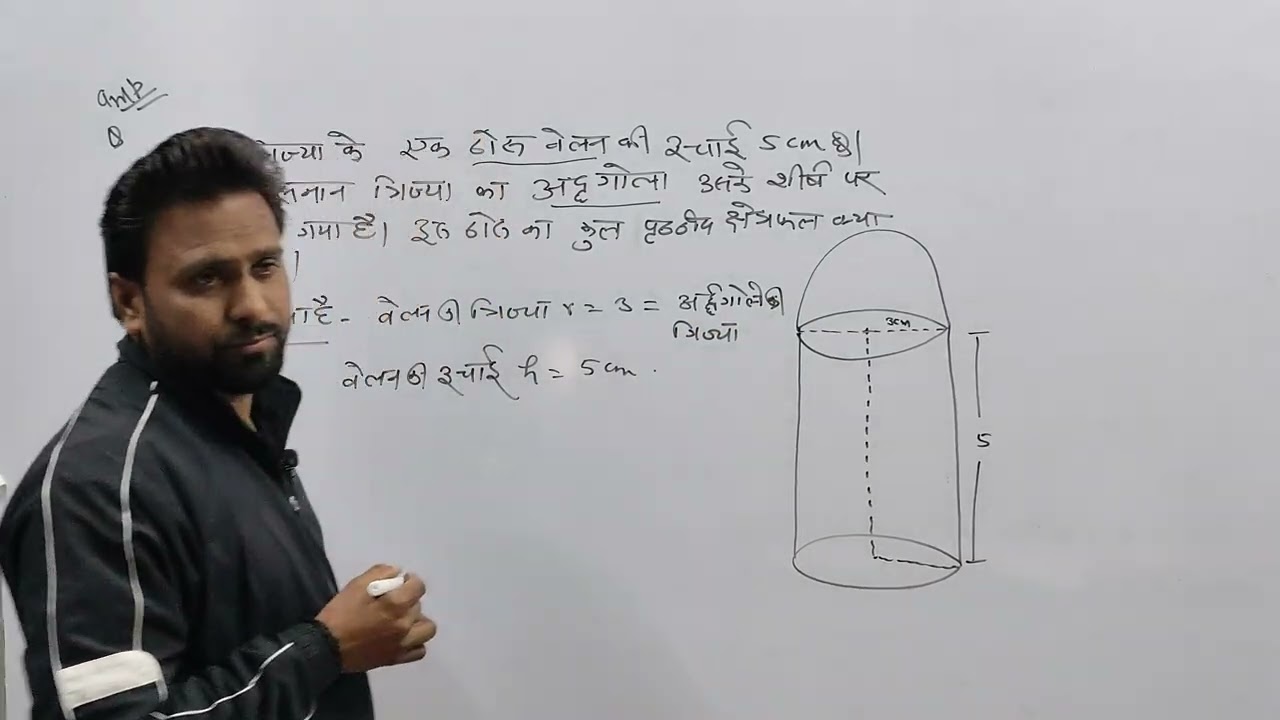 Q
त्रिज्या के एक ठोस बेलन की ऊंचाई 5 cm है।
समान त्रिज्या का अर्द्धगोला उसके शीर्ष पर
गया है। इस ठोस का कुल पृष्ठीय क्षेत्रफल क्या
।
है - बेलन की त्रिज्या r = 3 = अर्द्धगोले की
त्रिज्या
बेलन की ऊंचाई h = 5 cm .
3cm
5